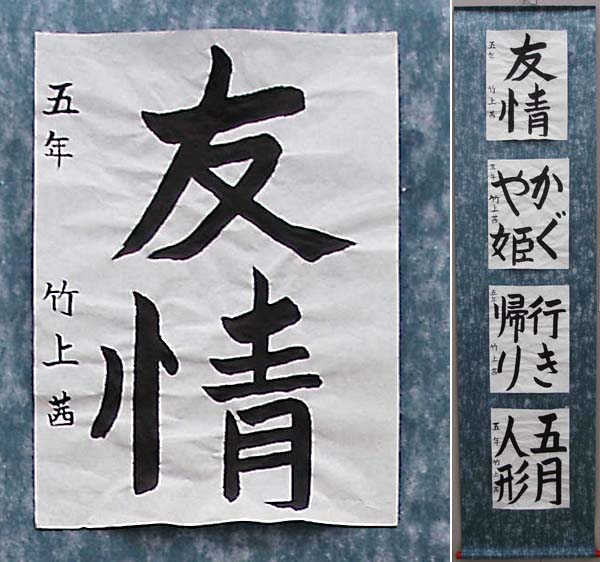 友情
五年 竹上茜
友情
五年 竹上茜
かぐ
や姫
五年 竹上茜
行き
帰り
五年 竹上茜
五月
人形
五年 竹上茜